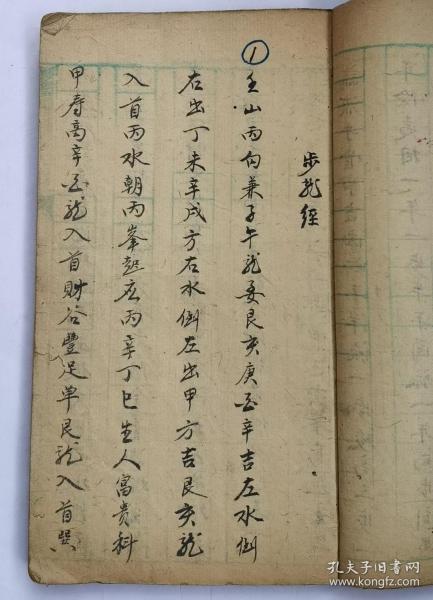 步龙经
①
壬山丙向兼子午龙要艮亥庚酉辛吉左水倒
右出丁未辛戌方右水倒左出甲方吉艮亥龙
入首丙水朝丙峯起应丙辛丁巳生人富贵科
甲寿高辛酉龙入首财谷豐足单艮龙入首巽
孔夫子旧书网
www.kongfz.com